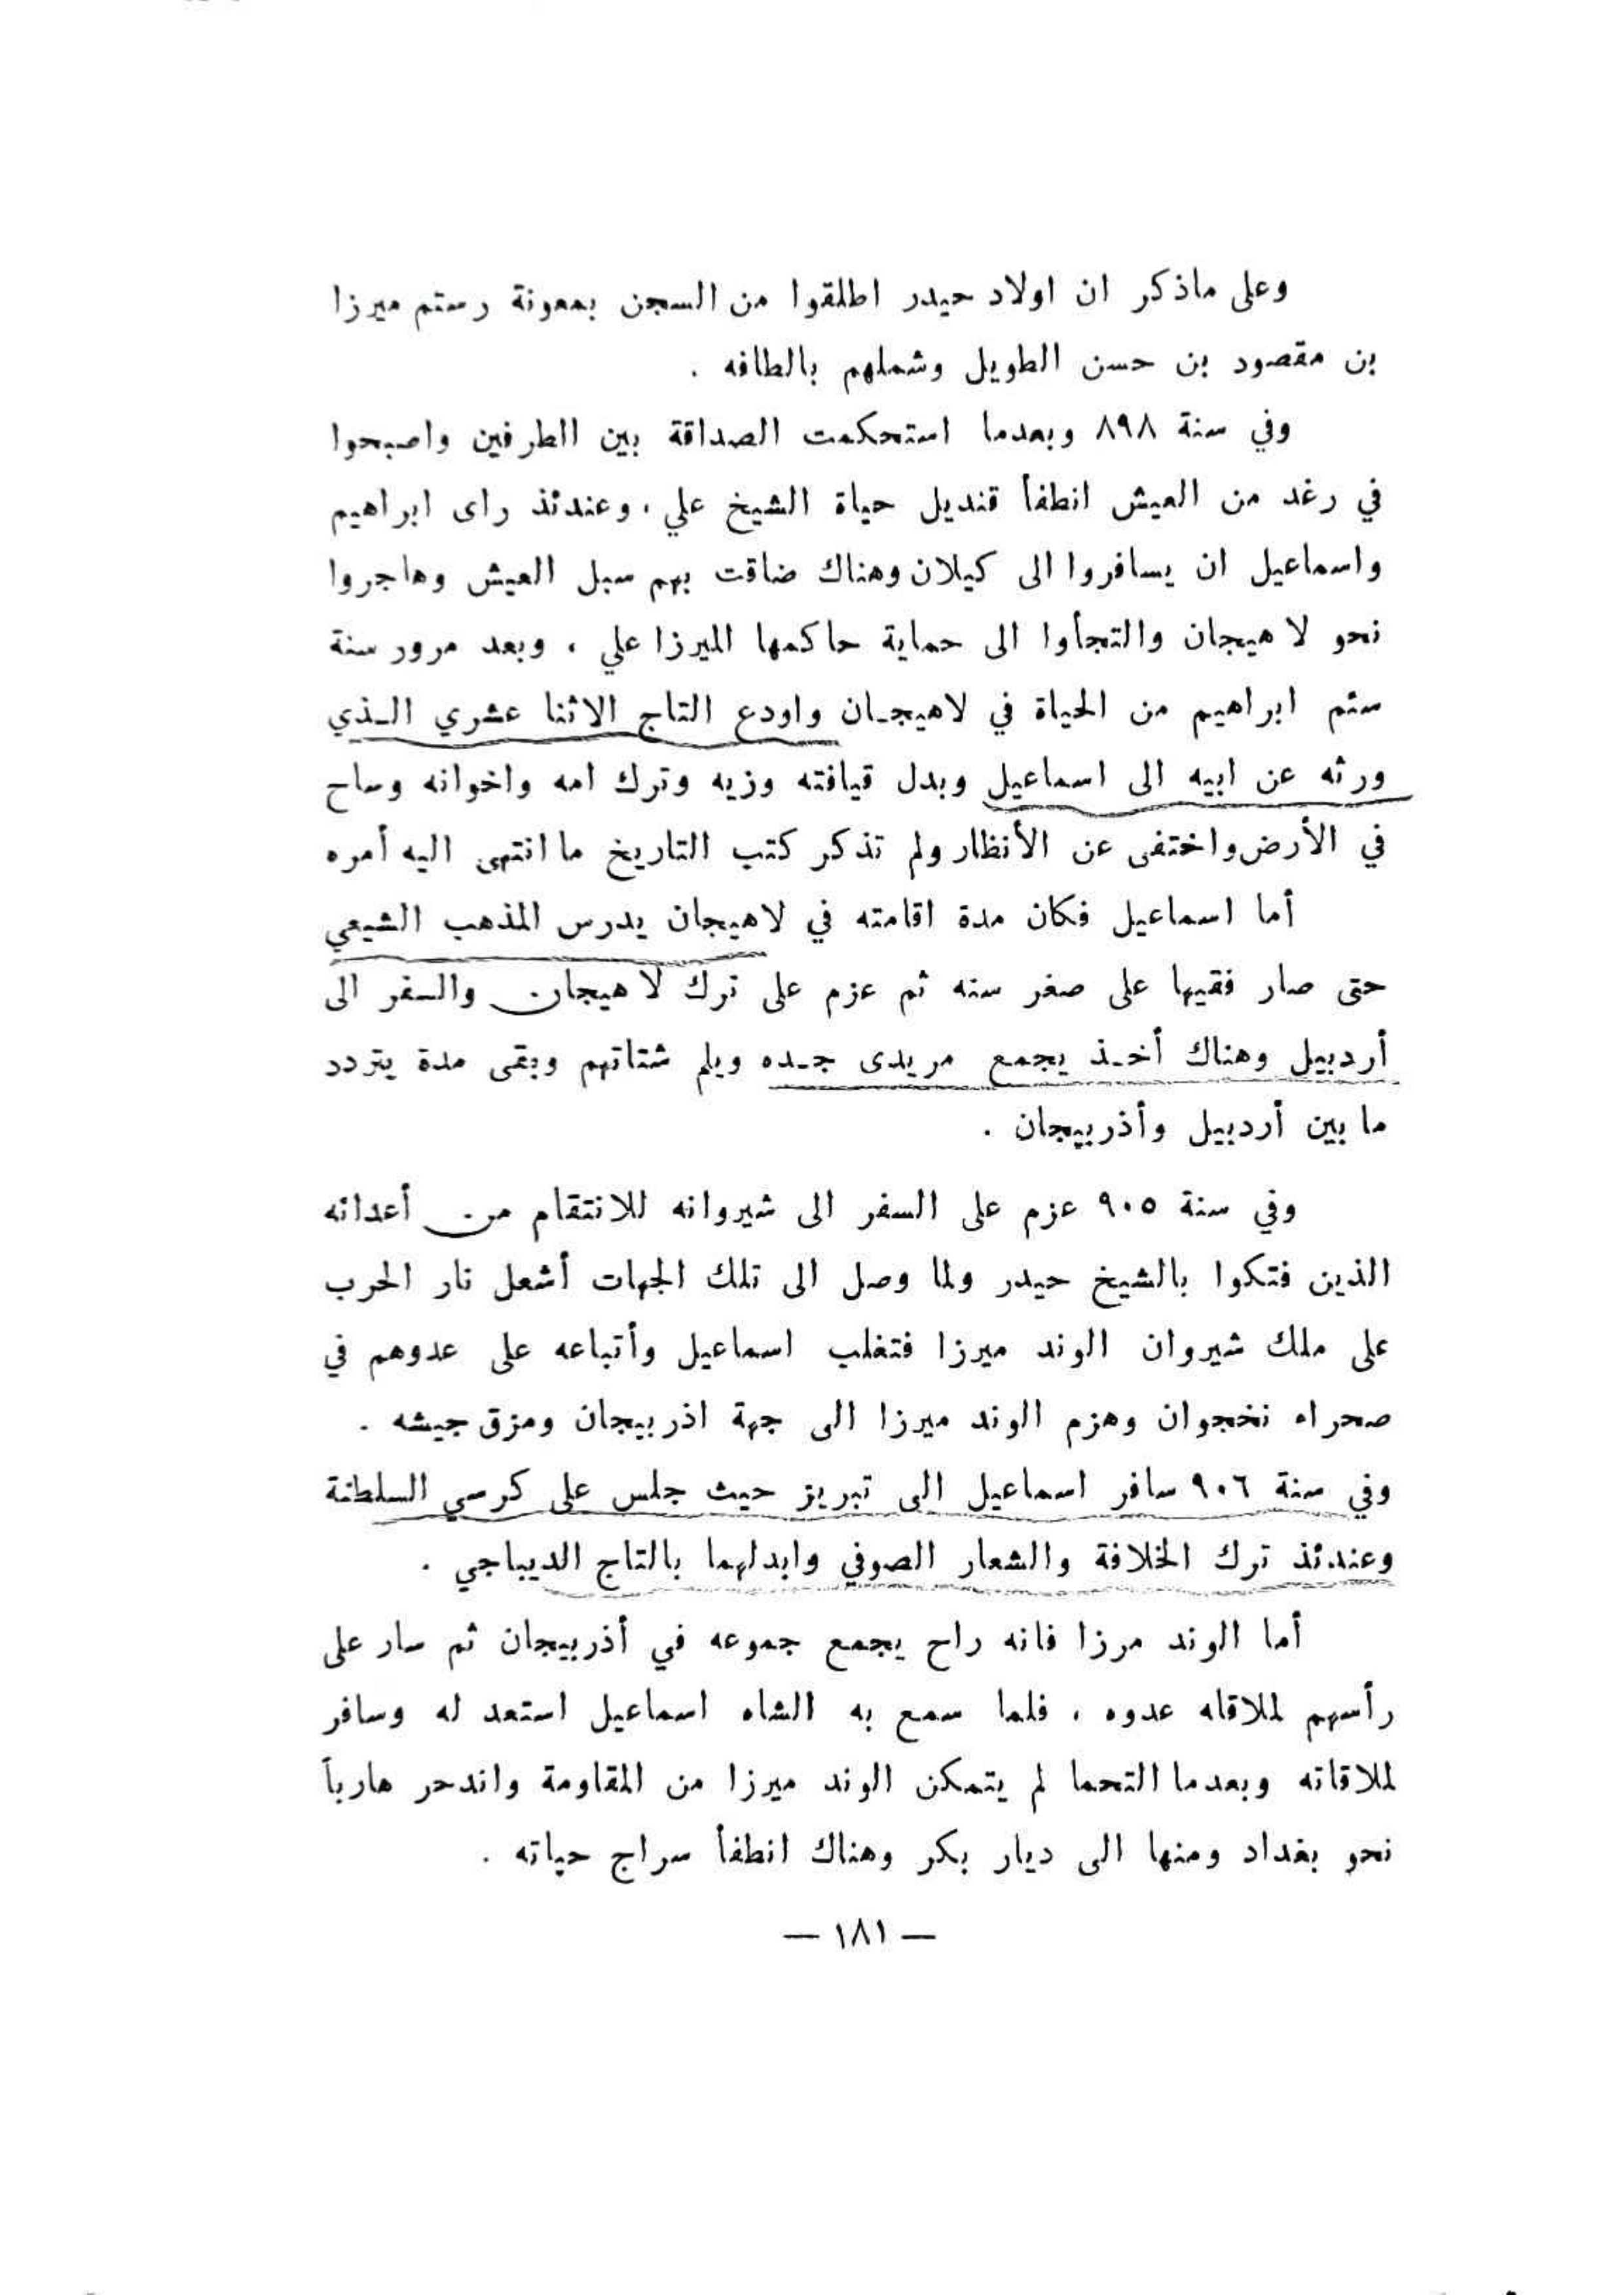 وعلى ماذكر ان اولاد حيدر اطلقوا من السجن بمعونة رستم ميرزا
بن مقصود بن حسن الطويل وشملهم بالطافه .
وفي سنة ٨٩٨ وبعدما استحكمت الصداقة بين الطرفين واصبحوا
في رغد من العيش انطفأ قنديل حياة الشيخ علي ، وعندئذ راى ابراهيم
واسماعيل ان يسافروا الى كيلان وهناك ضاقت بهم سبل العيش وهاجروا
نحو لاهيجان والتجأوا الى حماية حاكمها الميرزا علي ، وبعد مرور سنة
سئم ابراهيم من الحياة في لاهيجـان واودع التاج الاثنا عشري الـذي
ورثه عن ابيه الى اسماعيل وبدل قيافته وزيه وترك امه واخوانه وساح
في الأرض واختفى عن الأنظار ولم تذكر كتب التاريخ ما انتهى اليه أمره
أما اسماعيل فكان مدة اقامته في لاهيجان يدرس المذهب الشيعي
حتى صار فقيها على صغر سنه ثم عزم على ترك لاهيجان والسفر الى
أردبيل وهناك أخـذ يجمع مريدى جـده ويلم شتاتهم وبقى مدة يتردد
ما بين أردبيل وأذربيجان .
وفي سنة ٩٠٥ عزم على السفر الى شيروانه للانتقام من أعدائه
الذين فتكوا بالشيخ حيدر ولما وصل الى تلك الجهات أشعل نار الحرب
على ملك شيروان الوند ميرزا فتغلب اسماعيل وأتباعه على عدوهم في
صحراء نخجوان وهزم الوند ميرزا الى جهة اذربيجان ومزق جيشه .
وفي سنة ٩٠٦ سافر اسماعيل الى تبريز حيث جلس على كرسي السلطنة
وعندئذ ترك الخلافة والشعار الصوفي وابدلهما بالتاج الديباجي .
أما الوند مرزا فانه راح يجمع جموعه في أذربيجان ثم سار على
رأسهم لملاقاه عدوه ، فلما سمع به الشاه اسماعيل استعد له وسافر
لملاقاته وبعدما التحما لم يتمكن الوند ميرزا من المقاومة واندحر هارباً
نحو بغداد ومنها الى ديار بكر وهناك انطفأ سراج حياته .
— ١٨١ —